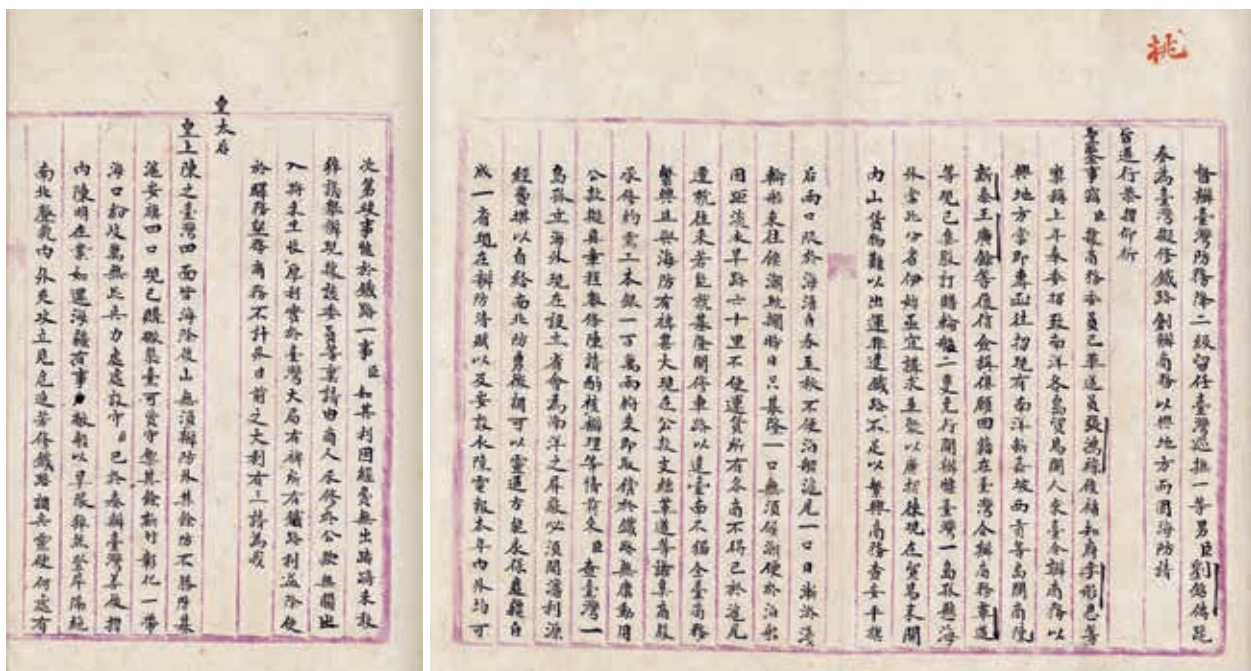 桃
督辦臺灣防務降二級留任臺灣巡撫一等男臣劉銘傳跪
奏為臺灣擬修鐵路創辦商務以興地方而固海防請
旨遵行恭摺仰祈
聖鑒事竊臣據商務委員已革道員張鴻祿候補知府李彤恩等
稟稱上年奉委招致南洋各島貿易閩人來臺合辦商務以
興地方當即專函往招現有南洋新嘉坡西貢等島閩商陳
新泰王廣餘等應信僉稱願回籍在臺灣合辦商務革道
等現已集股訂購輪船二隻先行開辦惟臺灣一島孤懸海
外當此分省伊始亟宜講求生聚以廣招徠現在貿易未開
內山貨物難以出運非造鐵路不足以繁興商務查安平旗
后兩口限於海湧自春至秋不便泊船滬尾一口日漸淤淺
輪船來往候潮耽擱時日只基隆一口無須候潮便於泊船
因距淡水旱路六十里不便運貨所有各商不得已於滬尾
遷就往來若能就基隆開修車路以達臺南不獨全臺商務
繁興且與海防有裨甚大現在公款支絀革道等議集商股
承修約需工本銀一百萬兩將來即取償於鐵路無庸動用
公款擬具章程數條陳請酌核辦理等情前來臣查臺灣一
島孤立海外現在設立省會為南洋之屏蔽必須開濬利源
經費堪以自給南北防勇徵調可以靈通方能永保巖疆自
成一省現在辦防清賦以及安設水陸電報本年內外均可
次第竣事惟於鐵路一事臣知其利因經費無出躊躇未敢
議舉辦現據該委員等稟請由商人承修於公款無關出
入將來利於臺灣大局有裨所有鐵路利益除使
於驛務墾務商務不計外目前之大利有三請為我
皇太后
皇上陳之臺灣四面皆海除後山無須辦防外其餘防不勝防基
滬安旗四口現已購礮築臺可資守禦其餘新竹彰化一帶
海口紛歧萬無此兵力處處設守臣已於奏辦臺灣善後摺
內陳明在案如遇海疆有事敵船以旱隊猝然登岸隔絕
南北聲氣內外夾攻立見危迫若修鐵路調兵靈便何處有